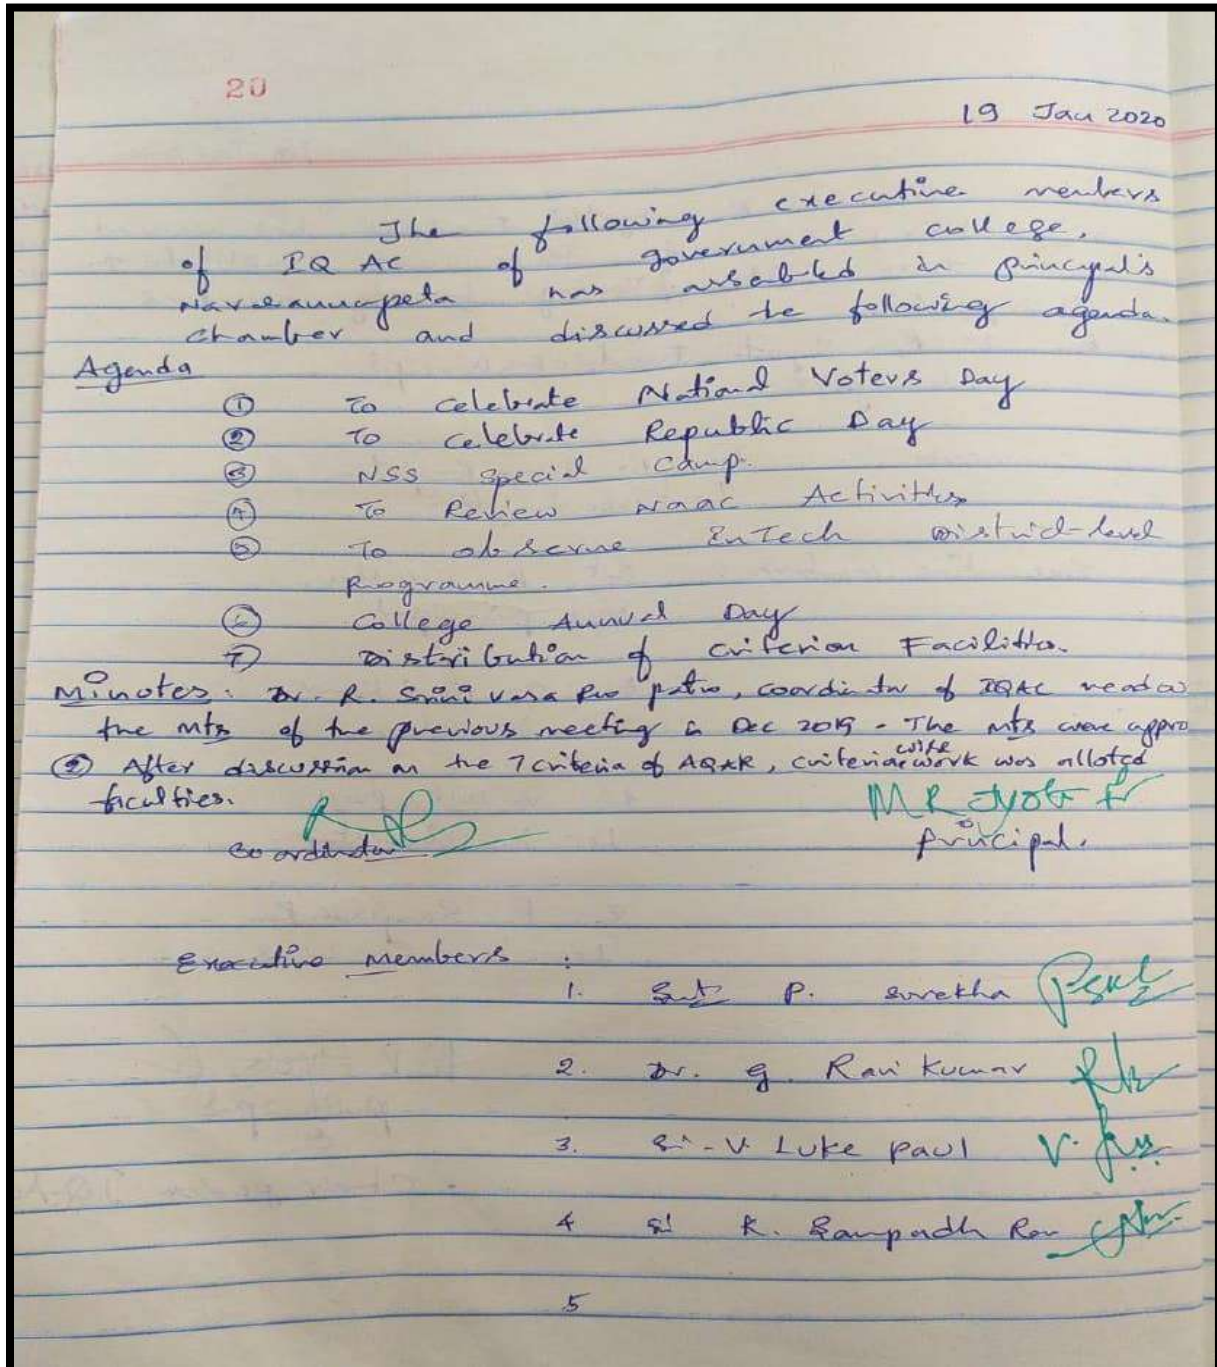 20
19 Jan 2020
The following executive members
of IQ AC of government college,
has in principal's
chamber and discussed te following agenda.
Agenda
① To celebrate National Voters Day
② To celebrate Republic Day
③ NSS special camp.
④ To Review Naac Activities
⑤ To observe EnTech District-level
Programme.
⑥ College Annual Day
7) Distribution of criterion Facilities.
Minutes: Dr. R. Srinivasa Rao patro, coordinator of IQAC read
the mts of the previous meeting in Dec 2019 - The mts were appro
② After discussion on the 7 criteria of AQAR, criteria wise work was alloted
faculties.
M R Jyoti
Coordinator
Principal.
Executive Members :
1. Smt P. Surekha
2. Dr. G. Ravi Kumar
3. Sri - V Luke paul V.
4 Sri K. Sampadh Rao
5